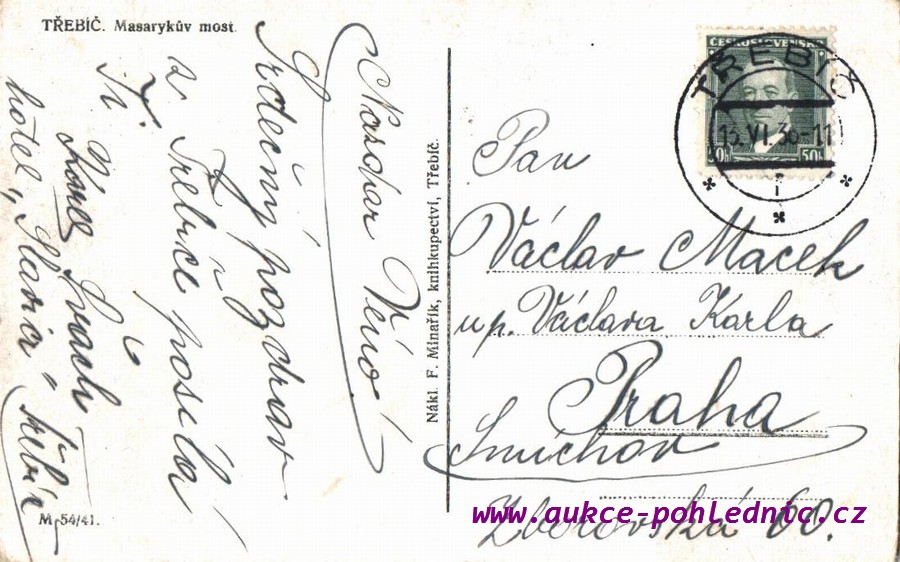 TŘEBÍČ. Masarykův most.
Nazdar Véno!
Srdečný pozdrav
z Třebíče posílá
Ti
Karel
hotel "Slavia" Třebíč
M-54/41.
Nákl. F. Minařík, knihkupectví, Třebíč.
ČESKOSLOVENSKO
50h
TŘEBÍČ
13.VI.36-11
Pan
Václav Macek
up. Václava Karla
Praha
Smíchov
Zborovská 60.
www.aukce-pohlednic.cz